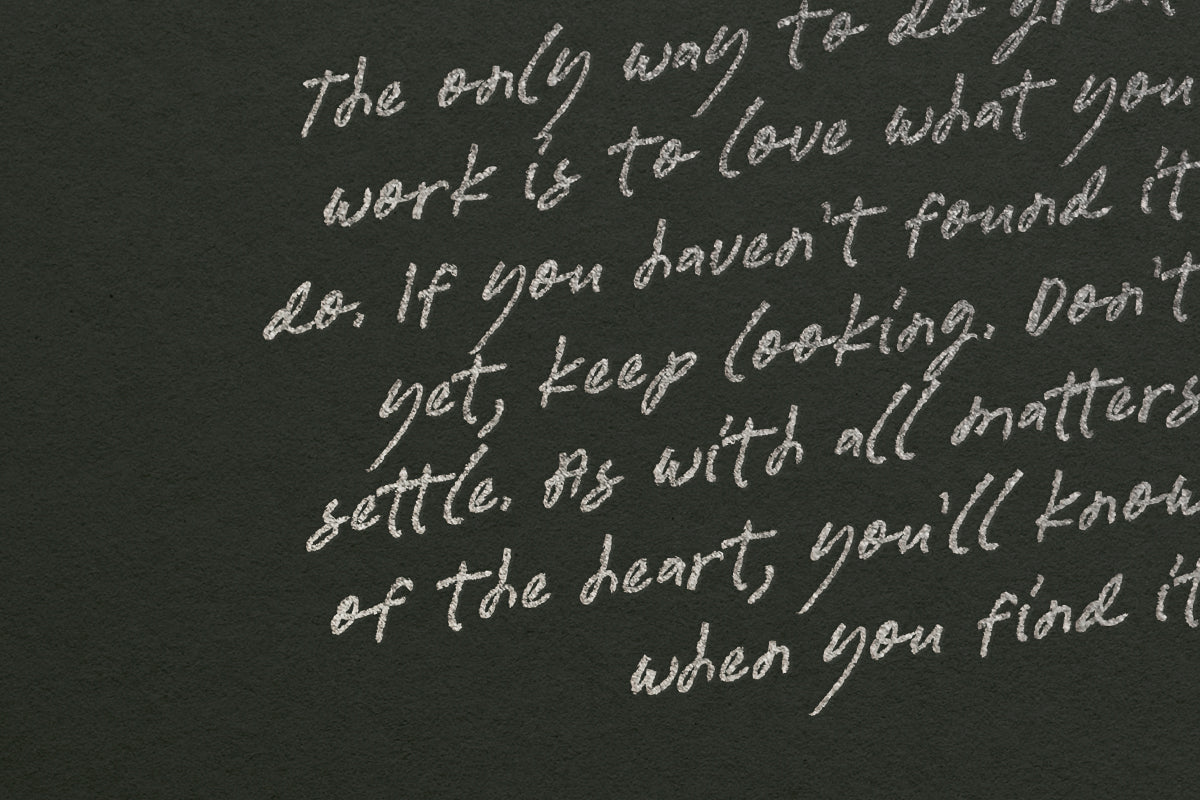 The only way to do great
work is to love what you
do. If you haven't found it
yet, keep looking. Don't
settle. As with all matters
of the heart, you'll know
when you find it